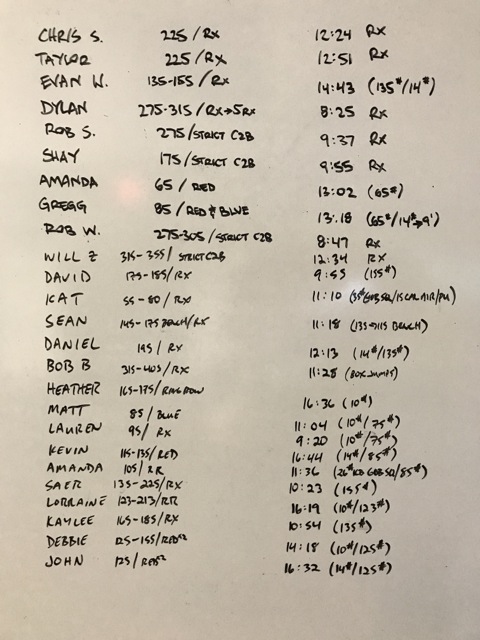 CHRIS S. 225/RX 12:24 RX
TAYLOR 225/RX 12:51 RX
EVAN W. 135-155/RX 14:43 (135#/14#)
DYLAN 275-315/RX→5RX 8:25 RX
ROB S. 275/STRICT C2B 9:37 RX
SHAY 175/STRICT C2B 9:55 RX
AMANDA 65/RED 13:02 (65#)
GREGG 85/RED & BLUE 13:18 (65#/14#→9')
ROB W. 275-305/STRICT C2B 8:47 RX
WILL Z 315-355/STRICT C2B 12:34 RX
DAVID 175-185/RX 9:55 (155#)
KAT 55-80/RX 11:10 (35# GOB SQ/15 CAL AIR/PU)
SEAN 145-175 BENCH/RX 11:18 (135→115 BENCH)
DANIEL 195/RX 12:13 (14#/135#)
BOB B 315-405/RX 11:28 (BOX JUMPS)
HEATHER 165-175/RING ROW 16:36 (10#)
MATT 85/BLUE 11:04 (10#/75#)
LAUREN 95/RX 9:20 (10#/75#)
KEVIN 115-135/RED 16:44 (14#/85#)
AMANDA 105/RR 11:36 (26# KB GOB SQ/85#)
SAER 135-225/RX 10:23 (155#)
LORRAINE 123-213/RR 16:19 (10#/123#)
KAYLEE 165-185/RX 10:54 (135#)
DEBBIE 125-155/RED×2 14:18 (10#/125#)
JOHN 125/RED×2 16:32 (14#/125#)